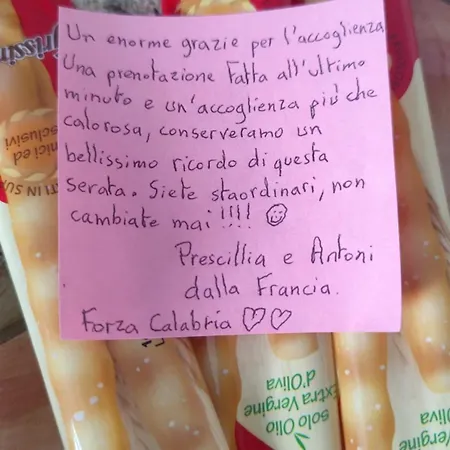 Un enorme grazie per l'accoglienza
Una prenotazione Fatta all'ultimo
minuto e un'accoglienza più che
calorosa, conserveramo un
bellissimo ricordo di questa
serata. Siete staordinari, non
cambiate mai !!!!
Prescillia e Antoni
dalla Francia.
Forza Calabria
solo Olio
Extra Vergine
d'Oliva
Vergine
Oliva